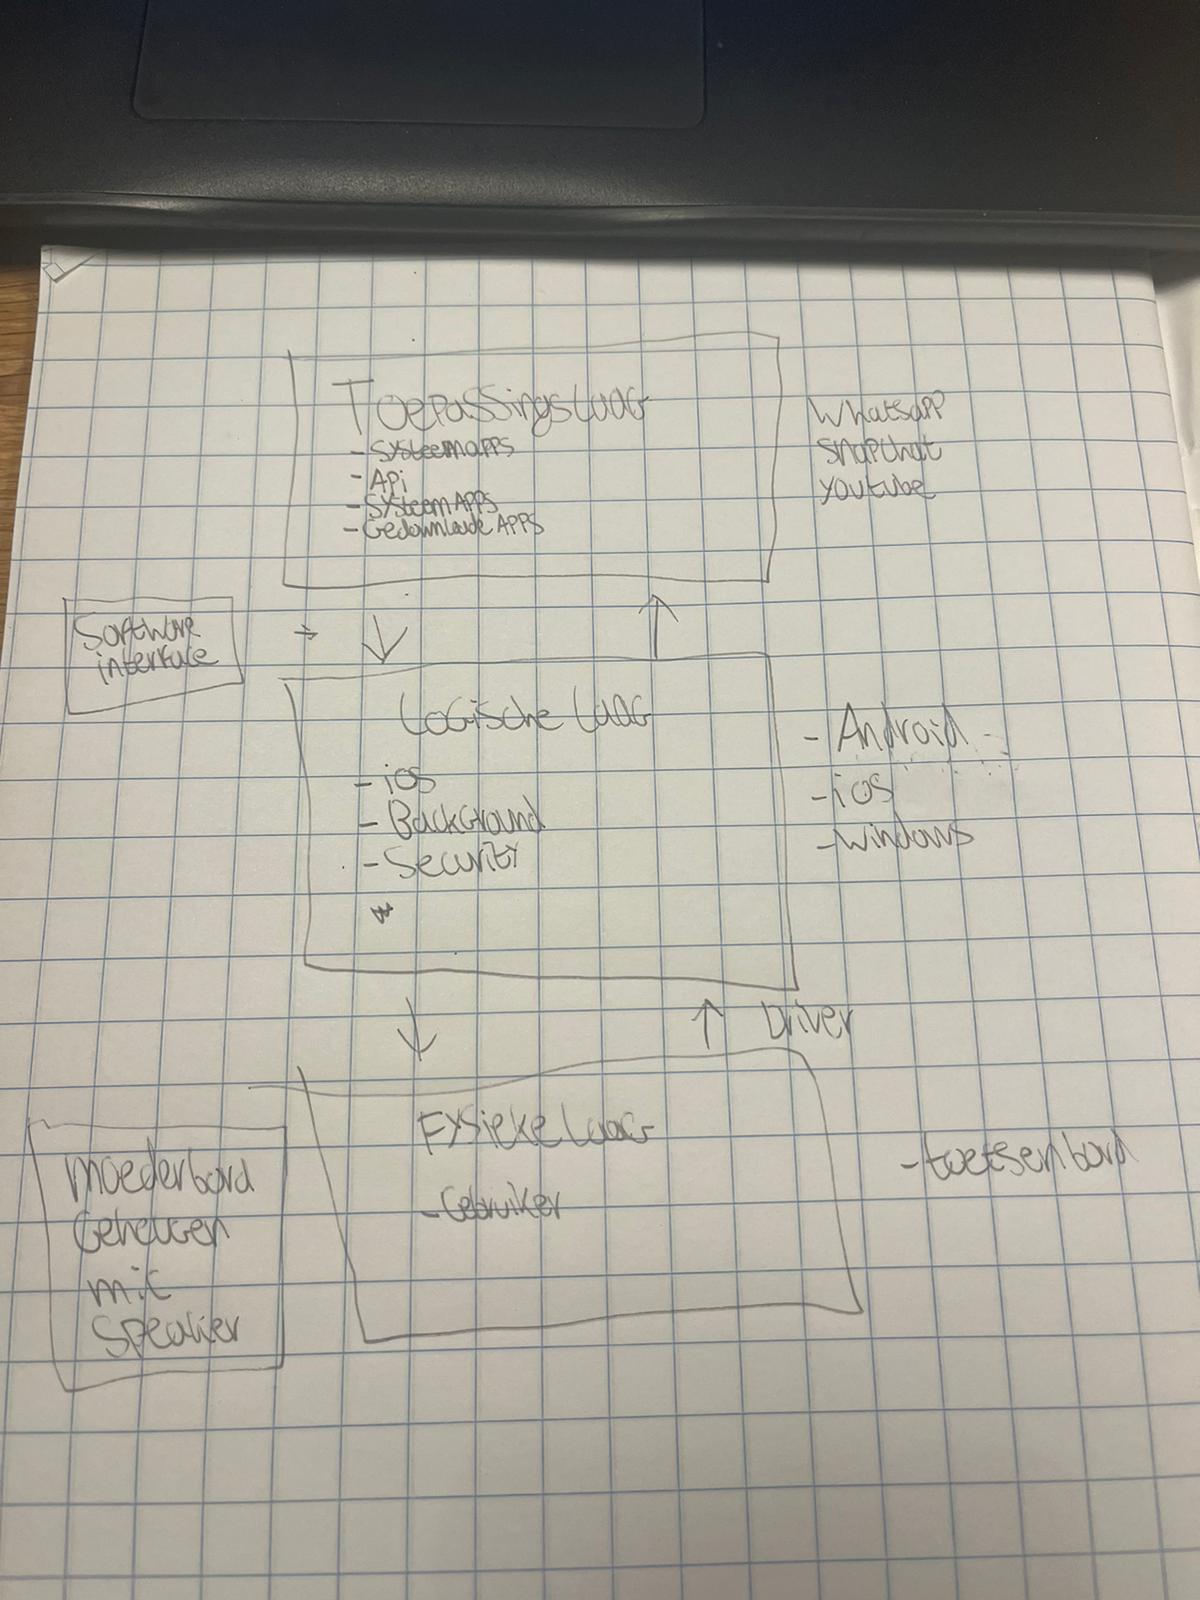 Toepassingslaag
- Systeemapps
- Api
- Systeem APPS
- Gedownloade APPS
Whatsapp
Snapchat
Youtube
Software
interface
Logische laag
- ios
- Background
- Security
- Android
- ios
- Windows
Driver
Fysieke laag
- Gebruiker
- toetsenbord
Moederbord
Geheugen
mic
Speaker